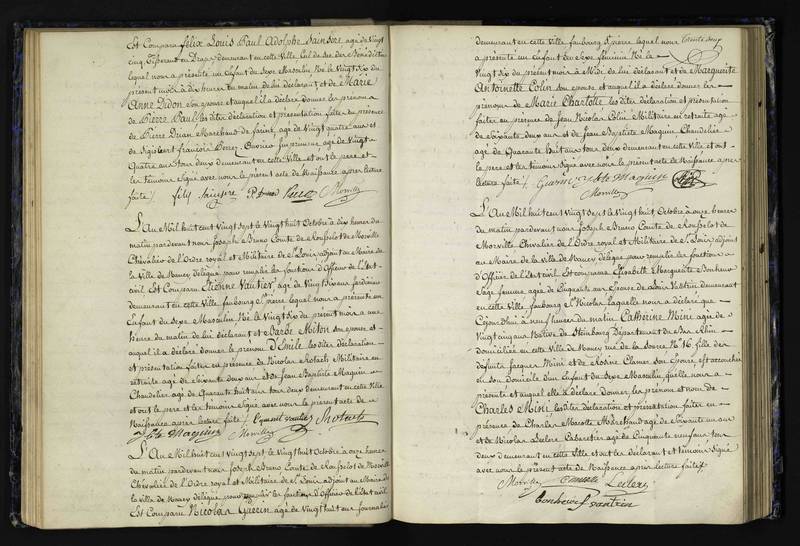 Est Comparu félix Louis Paul Adolphe Sainsère agé de Vingt
cinq demeurant en cette Ville
lequel nous a présenté un Enfant du Sexe Masculin Né le Vingt Six du
présent mois à dix heures du matin de lui déclarant et de Marie
Anne Didon son épouse et auquel il a déclaré donner les prénoms
de Pierre Paul les dites déclaration et présentation faites en présence
de Pierre Marchand de farine, agé de Vingt quatre ans et
de Sigisbert françois Perez, Ouvrier imprimeur agé de Vingt
Quatre ans tous deux demeurant en cette Ville et ont le père et
les témoins Signé avec nous le présent acte de Naissance après lecture
faite
félix Sainsère Perez Morville
L'An Mil huit cent Vingt Sept le Vingt huit Octobre à dix heures du
matin pardevant nous Joseph Bruno Comte de Rousselot de Morville
Chevalier de l'Ordre royal et Militaire de St. Louis adjoint au Maire de
la Ville de Nancy délégué pour remplir les fonctions d'Officier de l'Etat
civil Est Comparu Etienne Vautier agé de Vingt Six ans jardinier
demeurant en cette Ville, faubourg St. pierre lequel nous a présenté un
Enfant du Sexe Masculin Né le Vingt Six du présent mois à une
heure du matin de lui déclarant et Barbe Miton son épouse et
auquel il a déclaré donner le prénom D'Emile les dites déclaration
et présentation faites en présence de Nicolas Militaire en
retraite agé de Soixante deux ans et de Jean Baptiste Maguin
Chandelier agé de Quarante huit ans tous deux demeurant en cette Ville
et ont le père et les témoins Signé avec nous le présent acte de
Naissance après lecture faite
Morville
L'An Mil huit cent Vingt Sept le Vingt huit Octobre à onze heures
du matin pardevant nous Joseph Bruno Comte de Rousselot de Morville
Chevalier de l'Ordre royal et Militaire de St. Louis adjoint au Maire de
la ville de Nancy délégué pour remplir les fonctions d'Officier de l'Etat civil
Est Comparu Nicolas Guérin agé de Vingt huit ans journalier
demeurant en cette Ville faubourg St. pierre lequel nous
a présenté un Enfant du Sexe féminin Né le
Vingt Six du présent mois à Midi de lui déclarant et de Marguerite
Antoinette Colin son épouse et auquel il a déclaré donner les
prénoms de Marie Charlotte les dites déclaration et présentation
faites en présence de Jean Nicolas Colin Militaire en retraite agé
de Soixante deux ans et de Jean Baptiste Maguin Chandelier
agé de Quarante huit ans tous deux demeurant en cette Ville et ont
le père et les témoins Signé avec nous le présent acte de Naissance après
lecture faite
Guérin Morville
L'An Mil huit cent Vingt Sept le Vingt huit Octobre à onze heures
du matin pardevant nous Joseph Bruno Comte de Rousselot de
Morville Chevalier de l'Ordre royal et Militaire de St. Louis adjoint
au Maire de la ville de Nancy délégué pour remplir les fonctions
d'Officier de l'Etat civil Est comparue Elisabeth Marguerite Bonheur
Sage femme agée de Cinquante ans épouse de demeurant
en cette Ville, faubourg St. Nicolas Laquelle nous a déclaré que
Cejourd'hui à neuf heures du matin Cathérine Mini agée de
Vingt cinq ans Native de Département du Bas Rhin
domiciliée en cette Ville de Nancy rue de la Source No. 16, fille des
défunts Jacques Mini et de Rosine son épouse est accouchée
en son domicile d'un Enfant du Sexe Masculin, quelle nous a
présenté et auquel elle a déclaré donner les prénom et nom de
Charles Mini les dites déclaration et présentation faites en
présence de Charles Marchand agé de Soixante un ans
et de Nicolas Leclerc Cabaretier agé de Cinquante neuf ans tous
deux demeurant en cette Ville et ont les déclarant et témoins Signé
avec nous le présent acte de Naissance après lecture faite
Morville Leclerc